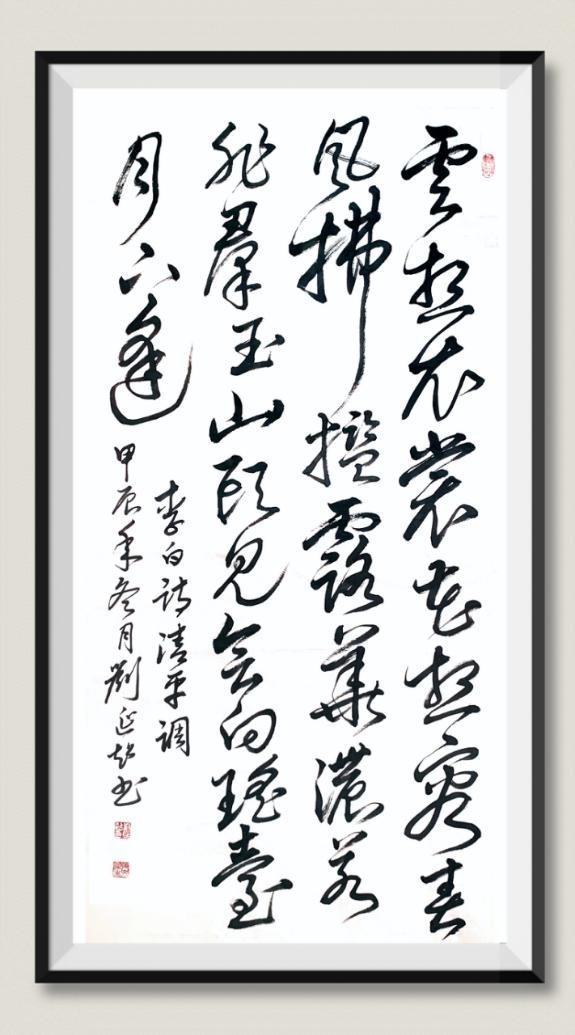 雲想衣裳花想容春
风拂檻露華濃若
非羣玉山頭見会向瑤臺
月下逢
李白诗清平调
甲辰年冬月劉延书